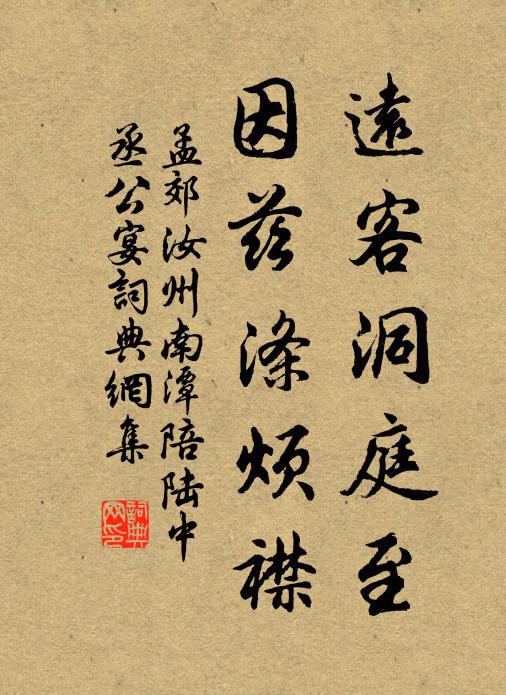 遠客洞庭至
因茲滌煩襟
孟郊汝州南潭陪陆中
丞公宴詞典網集
詞典
网印